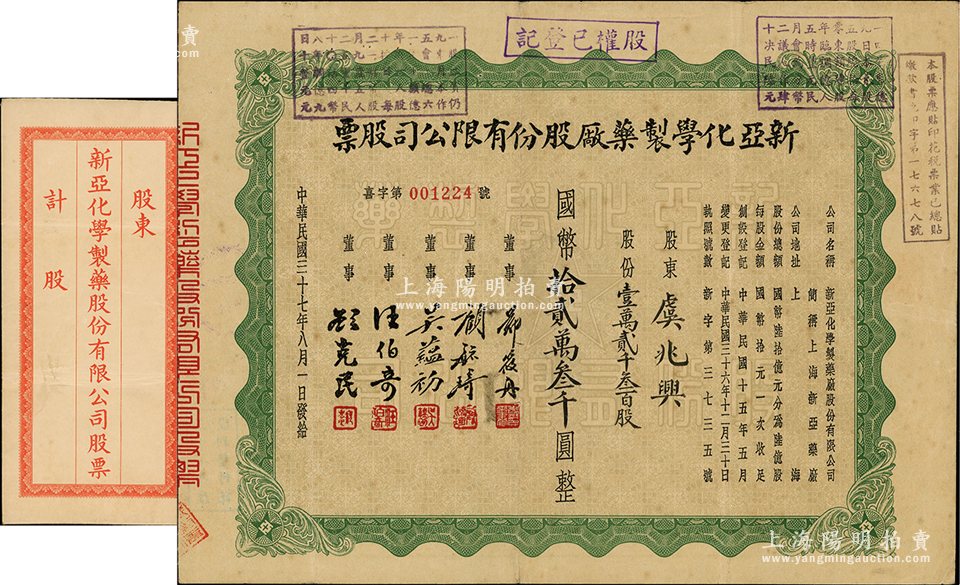 股權已登記
新亞化學製藥廠股份有限公司股票
公司名稱 新亞化學製藥廠股份有限公司
簡稱上海新亞藥廠
公司地址 上海
股份總額 國幣陸拾億元分為陸億股
每股金額 國幣拾元一次收足
創設登記 中華民國十五年五月
變更登記 中華民國三十六年十二月三十日
執照號數 新字第三七三五號
股東 虞兆興
股份壹萬貳千叁百股
國幣拾貳萬叁千圓整
喜字第 001224 號
董事
董事 顧毓琦
董事 吳蘊初
董事 汪伯奇
董事 顧克民
中華民國三十七年八月一日發給
本股票應貼印花稅票業已總貼
字第一七六七八號
股東
新亞化學製藥股份有限公司股票
計股
上海陽明拍賣
上海陽明拍賣